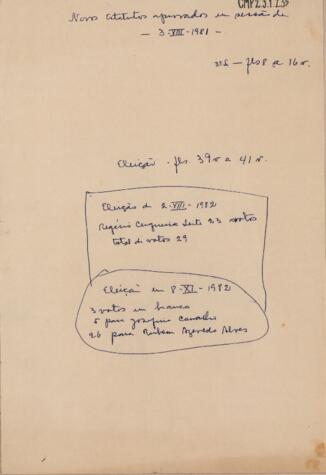 CMP2.3.1.233
Novos Estatutos aprovados em sessão de
— 3-VIII-1981 —
fls 8 a 16 v.
Eleição . fls. 39 v a 41 v.
Eleição de 2-VIII-1982
Rogério Cerqueira Leite 23 votos
total de votos 29
Eleição em 8-XI-1982
3 votos em branco
5 para Joaquim Carvalho
26 para Rubem Azevedo Alves